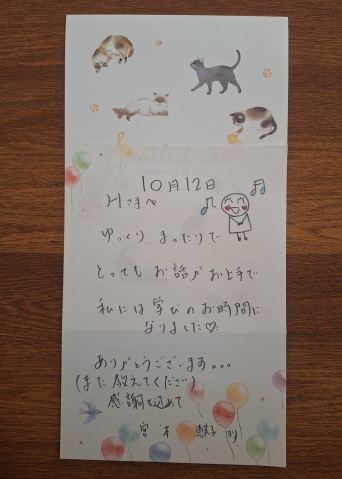 10月12日
Hさまへ
ゆっくり、まったりで
とっても お話が お上手で
私には 学びの お時間に
なりました♡
ありがとうございます。。。
(また 教えてください)
感謝を込めて
宮本 恵子 より